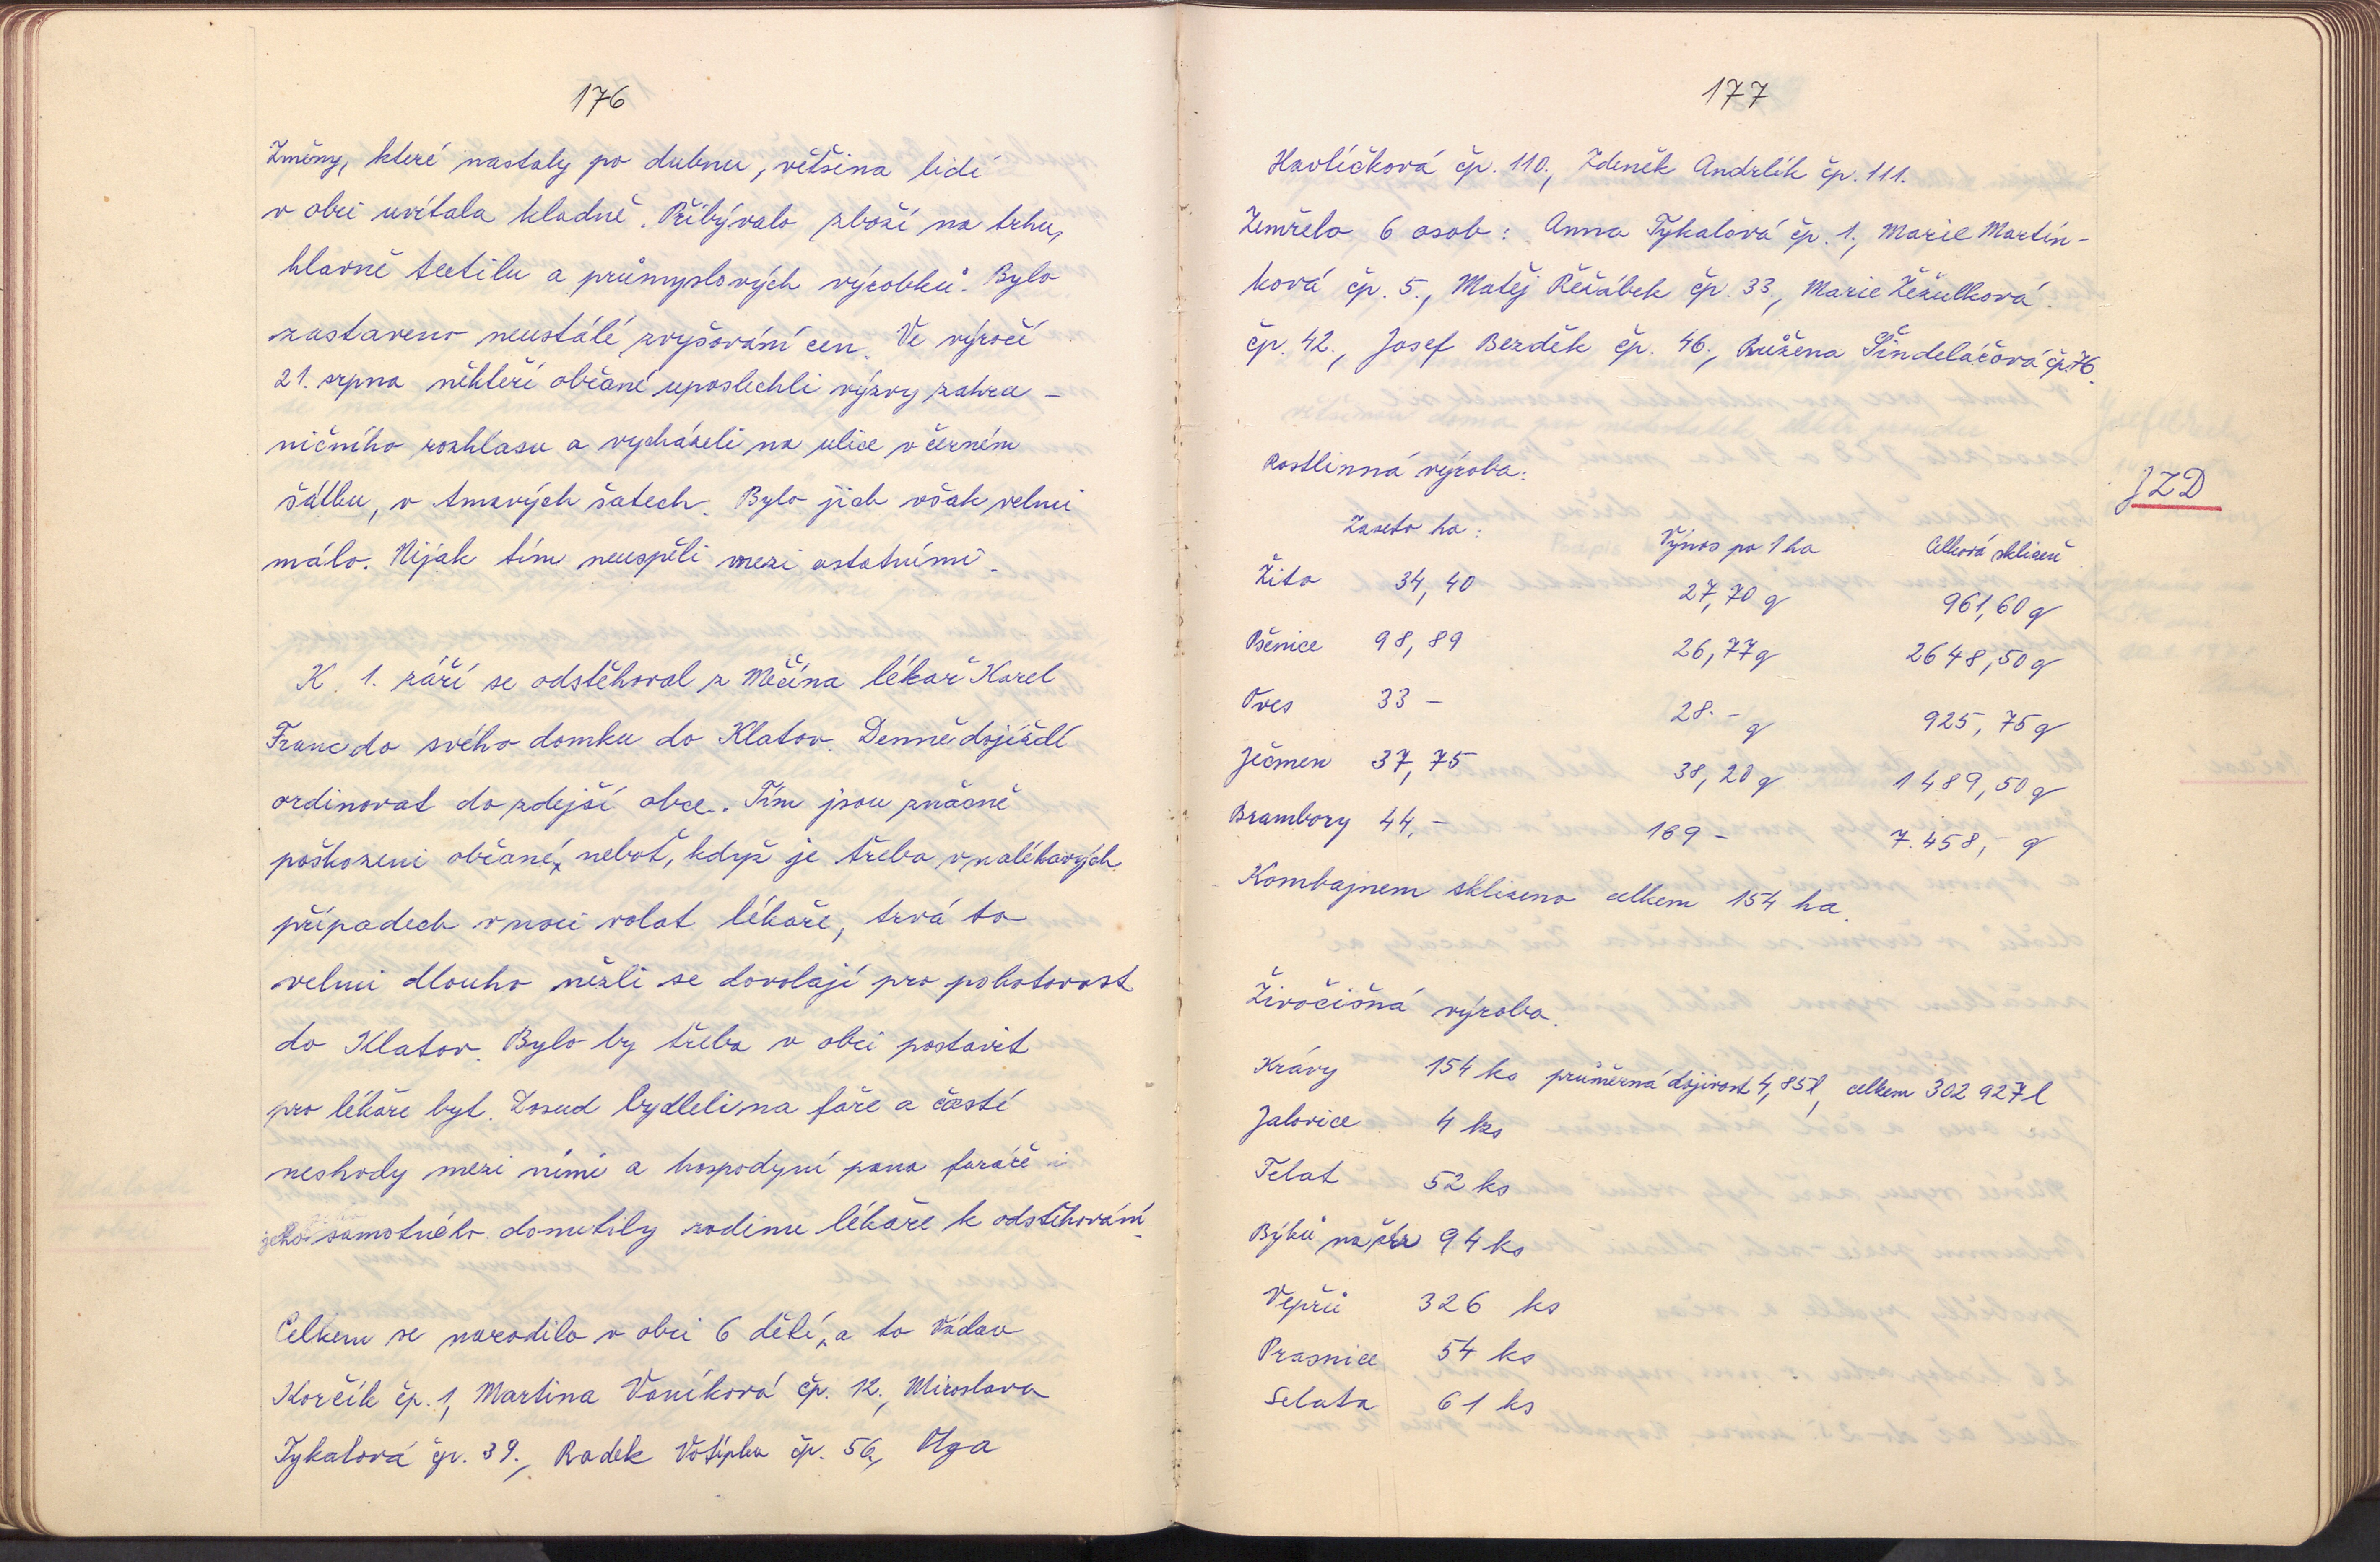 176
Změny, které nastaly po dubnu, většina lidí
v obci uvítala kladně. Přibývalo zboží na trhu,
hlavně textilu a průmyslových výrobků. Bylo
zastaveno neustálé zvyšování cen. Ve výročí
21. srpna někteří občané uposlechli výzvy zahra-
ničního rozhlasu a vycházeli na ulice v černém
šátku, v tmavých šatech. Bylo jich však velmi
málo. Nijak tím neuspěli mezi ostatními.
K 1. září se odstěhoval z Měčína lékař Karel
Franc do svého domku do Klatov. Denně dojíždí
ordinovat do zdejší obce. Tím jsou značně
poškozeni občané, neboť, když je třeba v naléhavých
případech v noci volat lékaře, trvá to
velmi dlouho nežli se dovolají pro pohotovost
do Klatov. Bylo by třeba v obci postavit
pro lékaře byt. Dosud bydleli na faře a časté
neshody mezi nimi a hospodyní pana faráře i
jeho samotného donutily rodinu lékaře k odstěhování.
Celkem se narodilo v obci 6 dětí, a to Václav
Korčík čp. 1, Martina Vaníková čp. 12., Miroslava
Tykalová čp. 39., Radek Votípka čp. 56., Olga
177
Havlíčková čp. 110., Zdeněk Andrlík čp. 111.
Zemřelo 6 osob: Anna Tykalová čp. 1., Marie Martín-
ková čp. 5., Matěj Řežábek čp. 33., Marie Žežulková
čp. 42., Josef Bezděk čp. 46., Růžena Šindelářová čp. 76.
Rostlinná výroba:
JZD
Zaseto ha: Výnos po 1 ha Celková sklizeň
Žito 34,40 27,70 q 961,60 q
Pšenice 98,89 26,77 q 2648,50 q
Oves 33 - 28.- q 925,75 q
Ječmen 37,75 38,20 q 1489,50 q
Brambory 44,- 169 - 7.458,- q
Kombajnem sklizeno celkem 154 ha.
Živočišná výroba.
Krávy 154 ks průměrná dojivost 4,85 l, celkem 302 927 l
Jalovice 4 ks
Telat 52 ks
Býků na 94 ks
Vepřů 326 ks
Prasnice 54 ks
Selata 61 ks